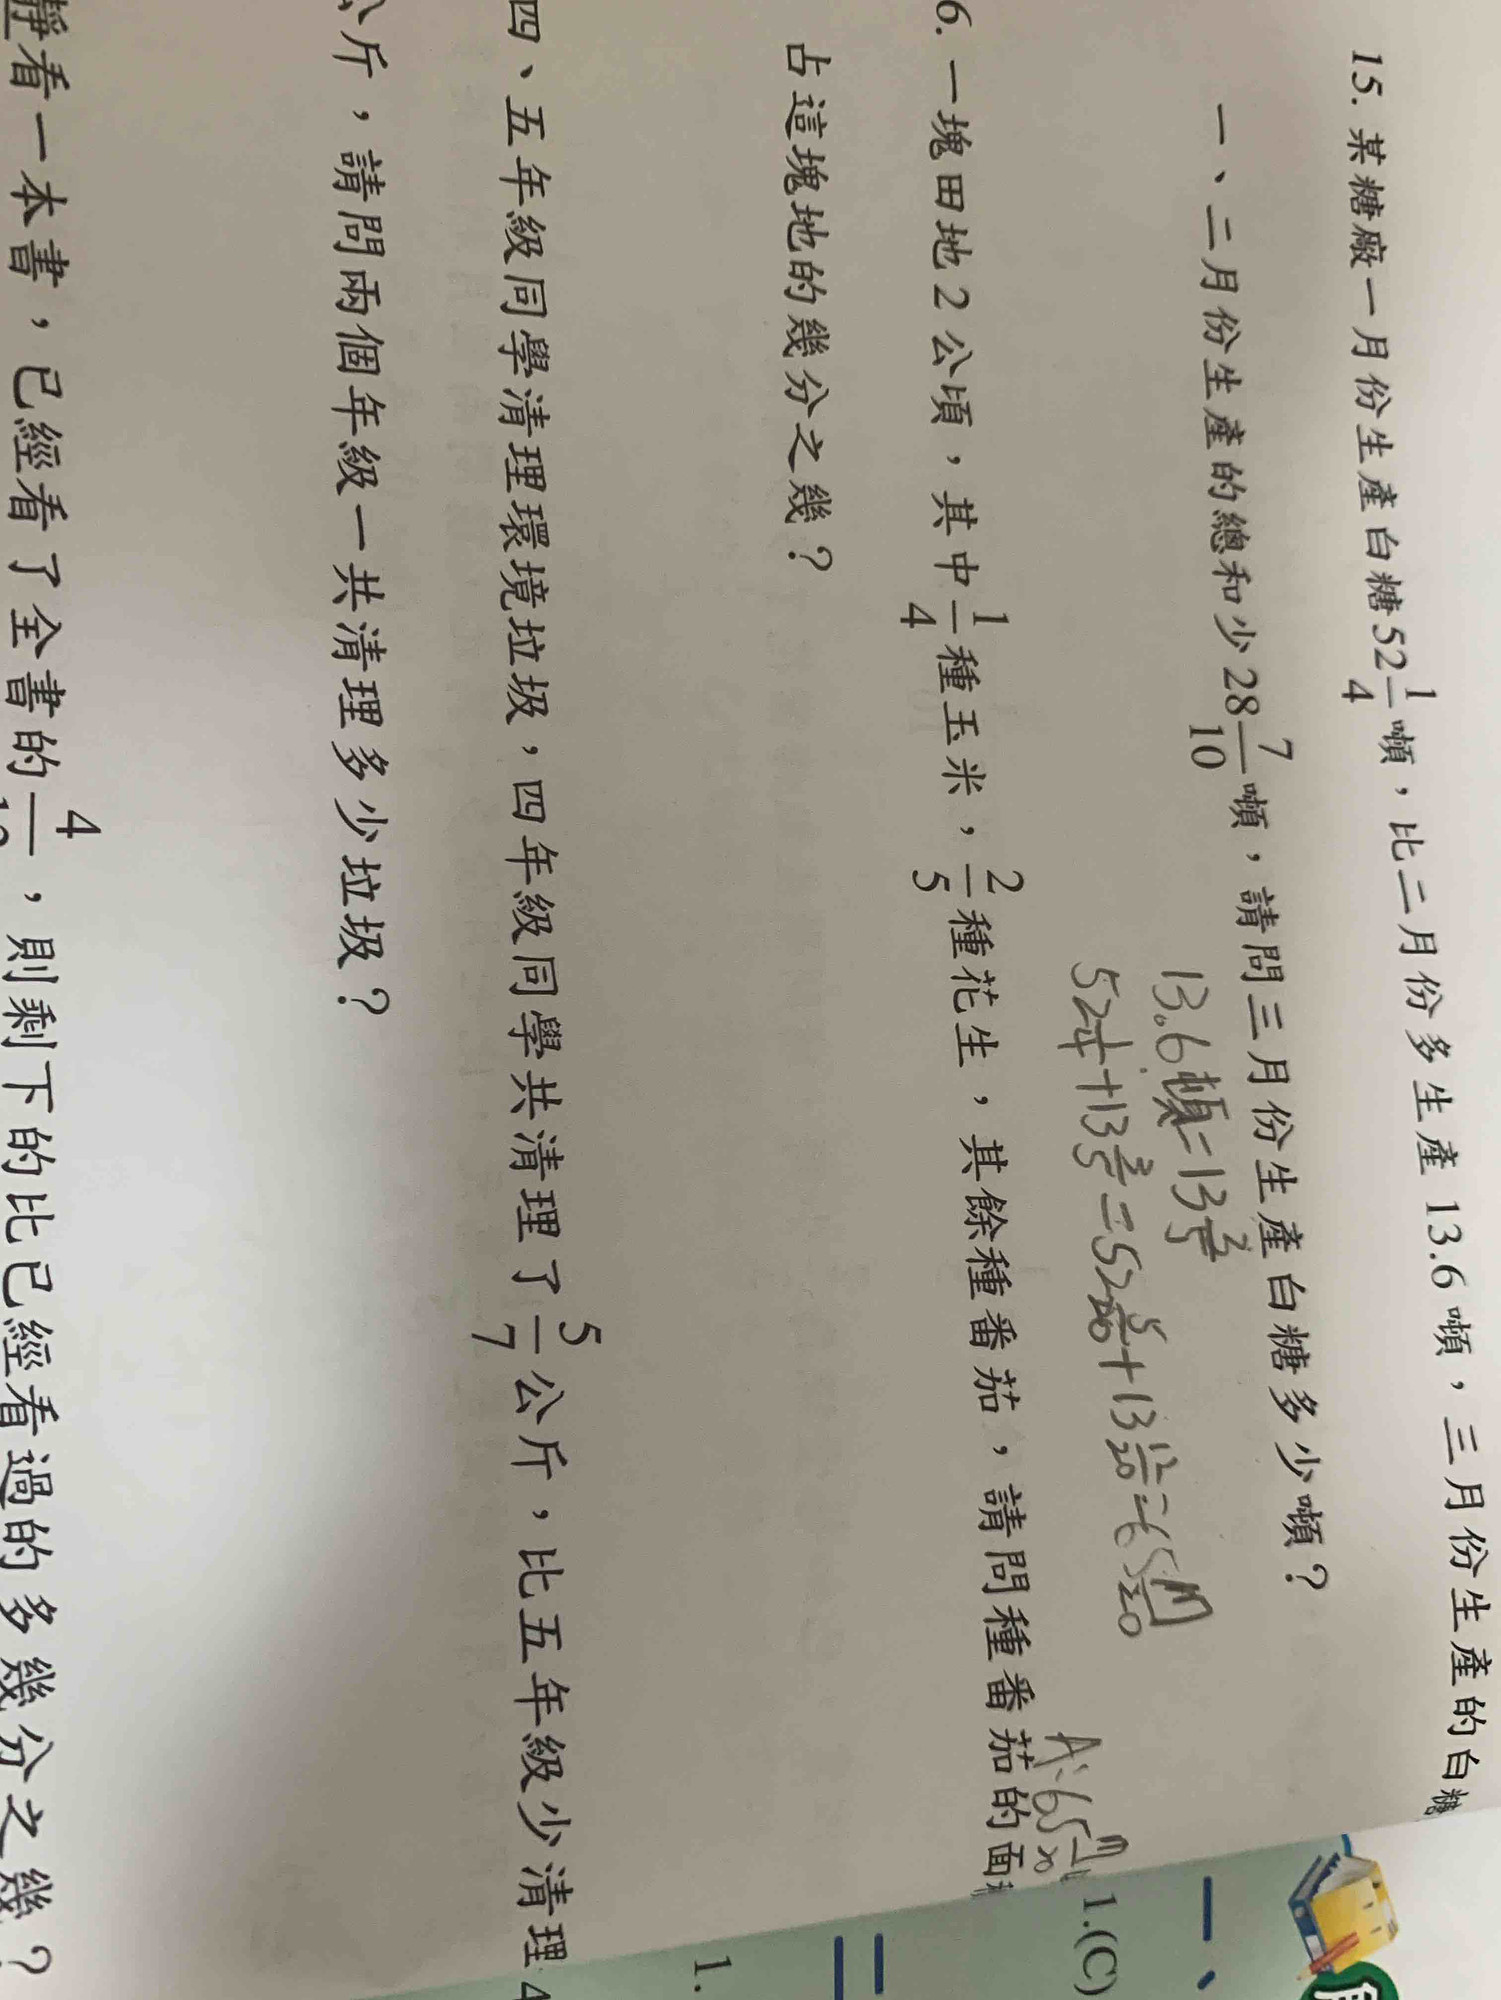 15. 某糖廠一月份生產白糖52 1/4 噸，比二月份多生產 13.6 噸，三月份生產的白糖
一、二月份生產的總和少28 7/10 噸，請問三月份生產白糖多少噸？
13.6噸=13 3/5
52 1/4+13 3/5=52 5/20+13 12/20=65 17/20
A:65
6. 一塊田地2公頃，其中 1/4 種玉米， 2/5 種花生，其餘種番茄，請問種番茄的面
占這塊地的幾分之幾？
四、五年級同學清理環境垃圾，四年級同學共清理了 5/7 公斤，比五年級少清理
公斤，請問兩個年級一共清理多少垃圾？
靜看一本書，已經看了全書的 4/ ，則剩下的比已經看過的多幾分之幾？
一、
1.(C)
二
1.